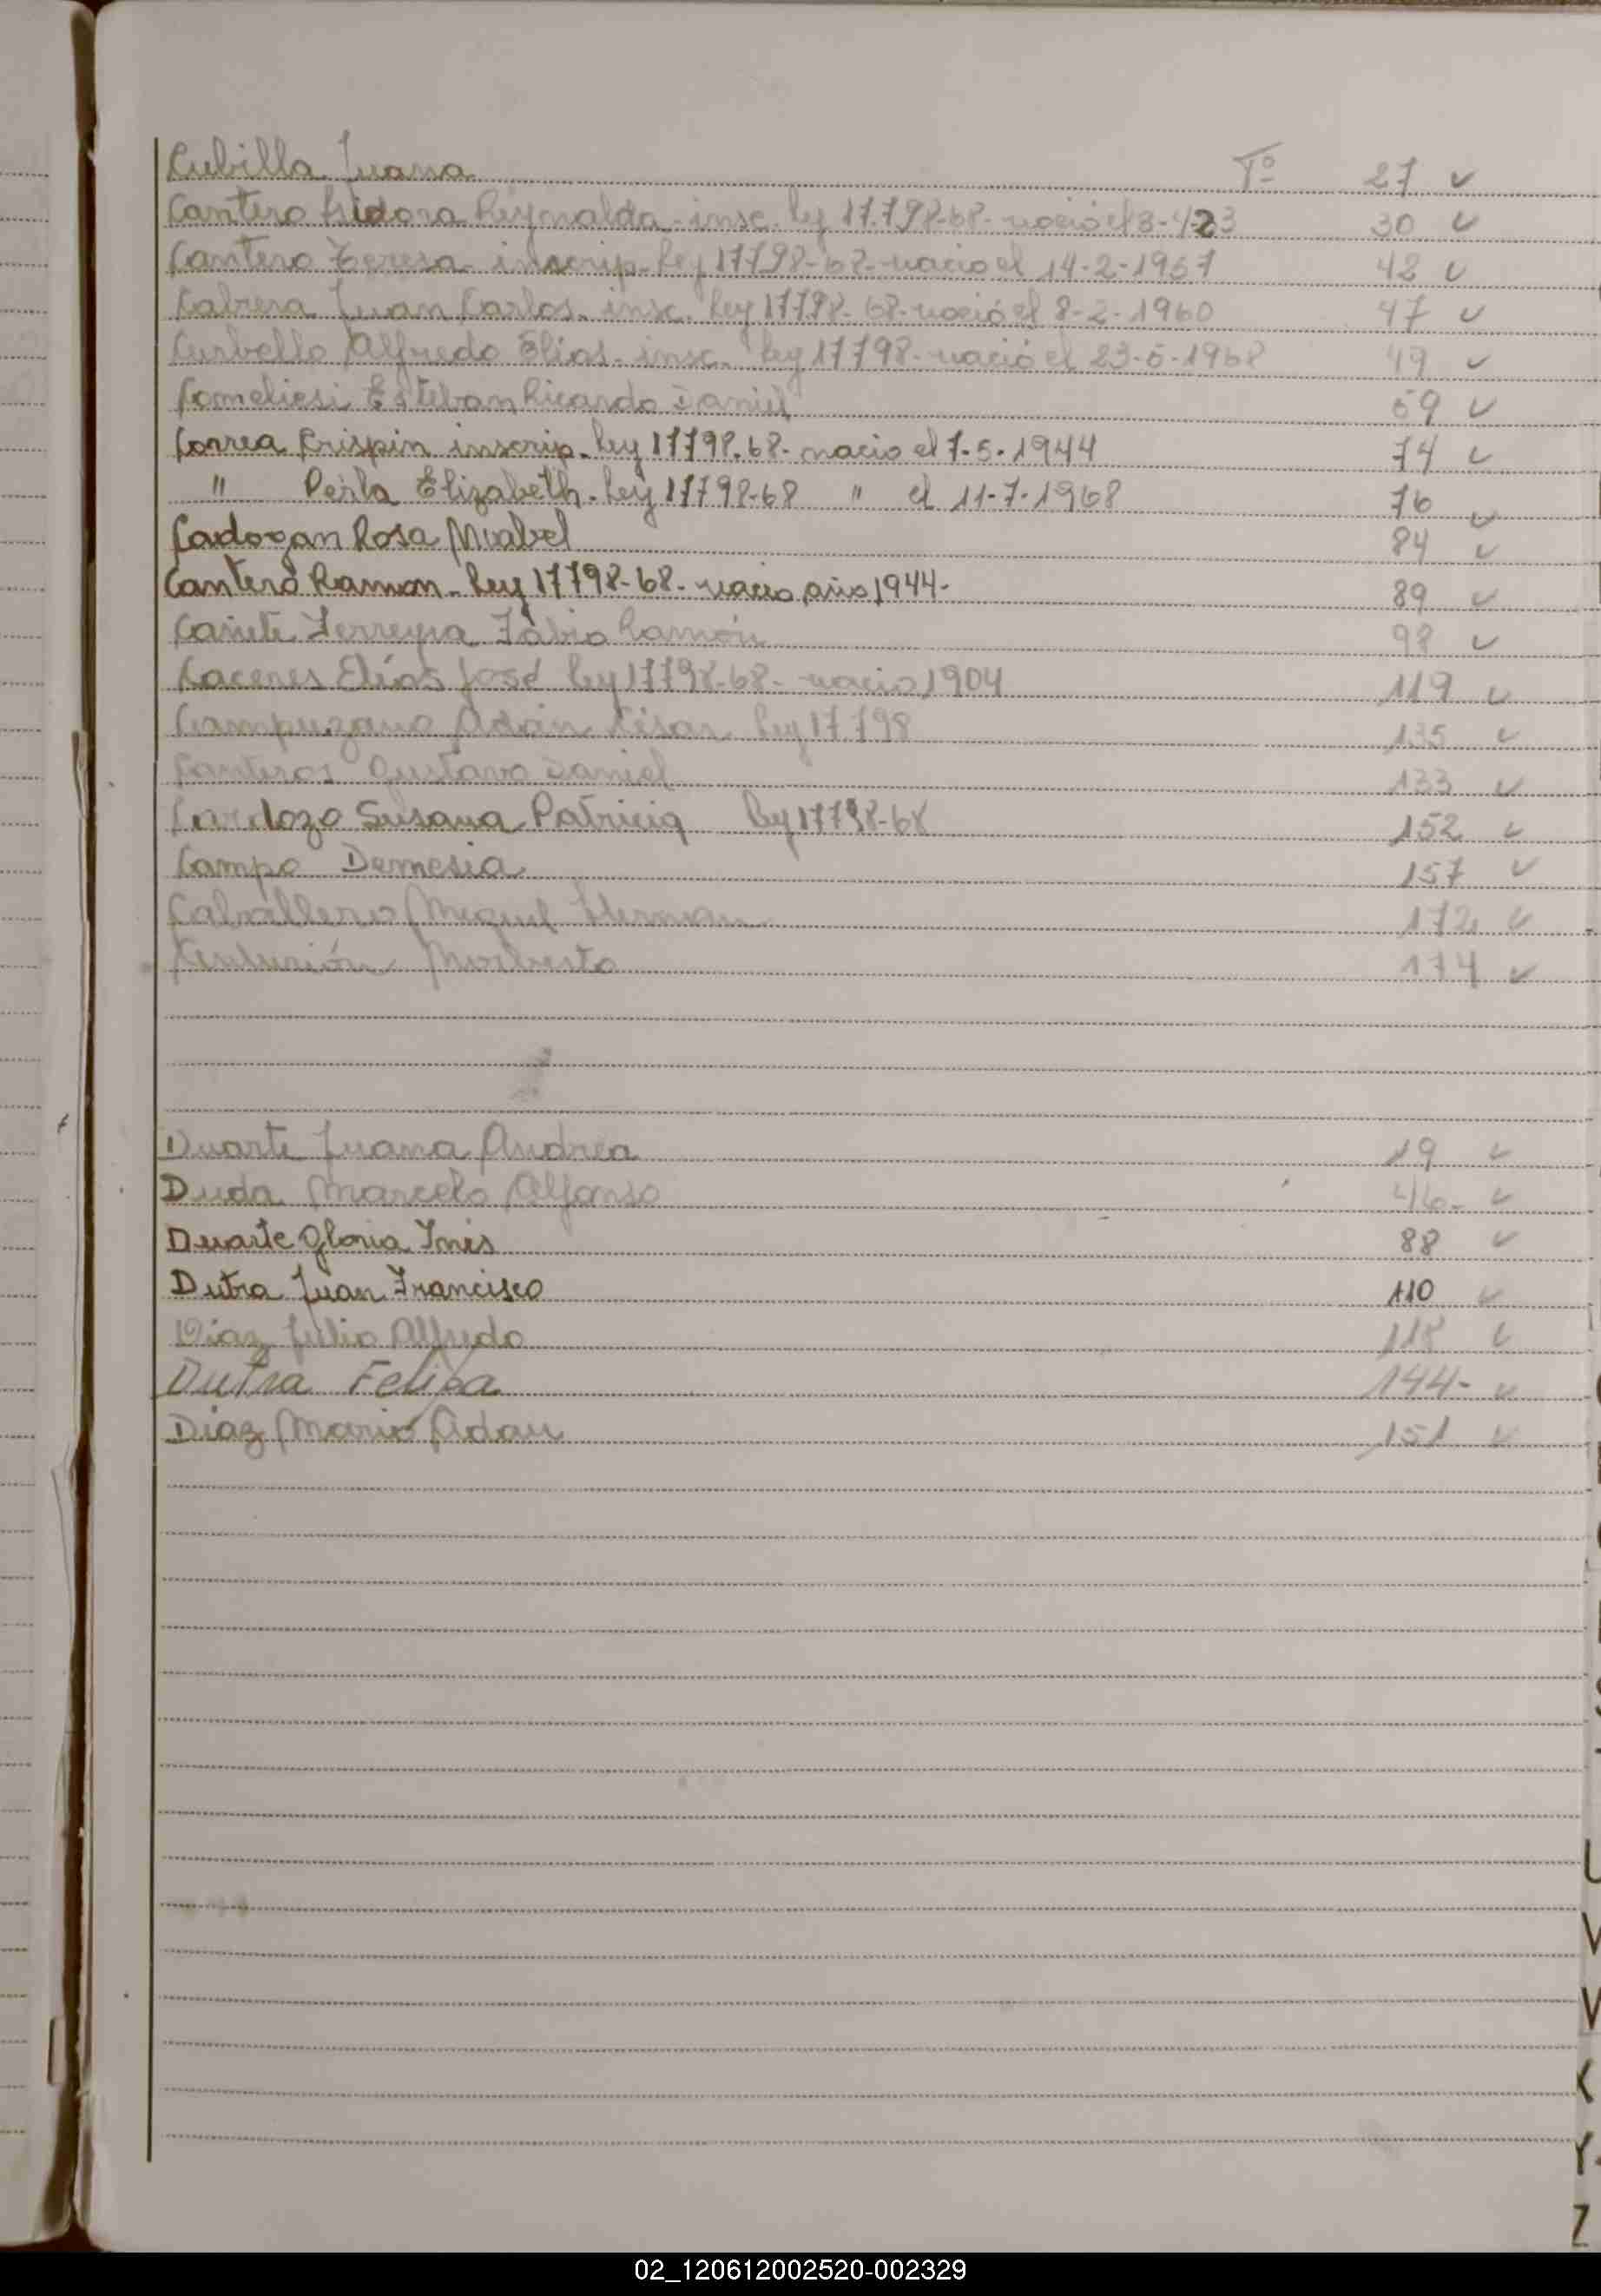 Cubilla Juana Tº 27 ✓
Cantero Isidora Reynalda - insc. ley 17.798-68 - nació el 3-4-23 30 ✓
Cantero Teresa - inscrip. ley 17798-68 - nacio el 14-2-1957 42 ✓
Cabrera Juan Carlos - insc. ley 17798-68 - nació el 8-2-1960 47 ✓
Curbello Alfredo Elias - insc. ley 17798 - nació el 23-5-1968 49 ✓
Esteban Ricardo Daniel 59 ✓
Correa Crispin inscrip. ley 17798.68 - nacio el 7-5-1944 74 ✓
" Perla Elizabeth - Ley 17798-68 " el 11-7-1968 76 ✓
Cadogan Rosa Mirabel 84 ✓
Cantero Ramon - Ley 17798-68 - nacio año 1944 - 89 ✓
Cañete Ferreyra Fabio Ramón 98 ✓
Caceres Elías José ley 17798-68 - nacio 1904 119 ✓
Campuzano Adán César Ley 17.798 135 ✓
Canteros Gustavo Daniel 133 ✓
Cardozo Susana Patricia ley 17798-68 152 ✓
Campo Demesia 157 ✓
Caballero Miguel Hernan 172 ✓
Centurión Norberto 174 ✓
Duarte Juana Andrea 19 ✓
Duda Marcelo Alfonso 46- ✓
Duarte Gloria Inés 88 ✓
Dutra Juan Francisco 110 ✓
Diaz Julio Alfredo 118 ✓
Dutra Felipa 144- ✓
Diaz Mario Adan 151 ✓
U
V
V
X
Y
Z
02_120612002520-002329